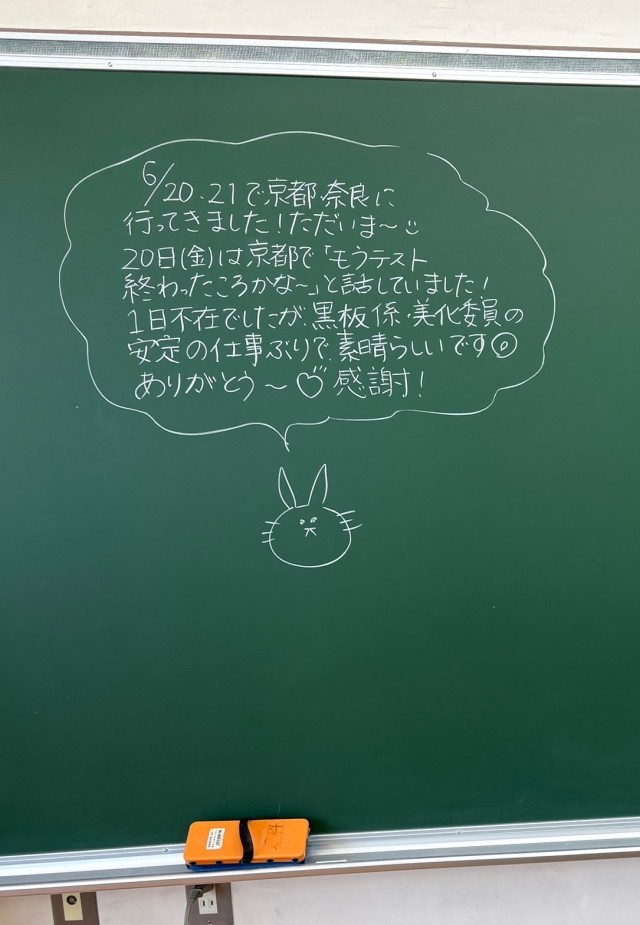 6/20.21で京都・奈良に
行ってきました！ただいま〜
20日(金)は京都で「もうテスト
終わったころかな〜」と話していました！
1日不在でしたが、黒板係・美化委員の
安定の仕事ぶりで、素晴らしいです◎
ありがとう〜♡感謝！